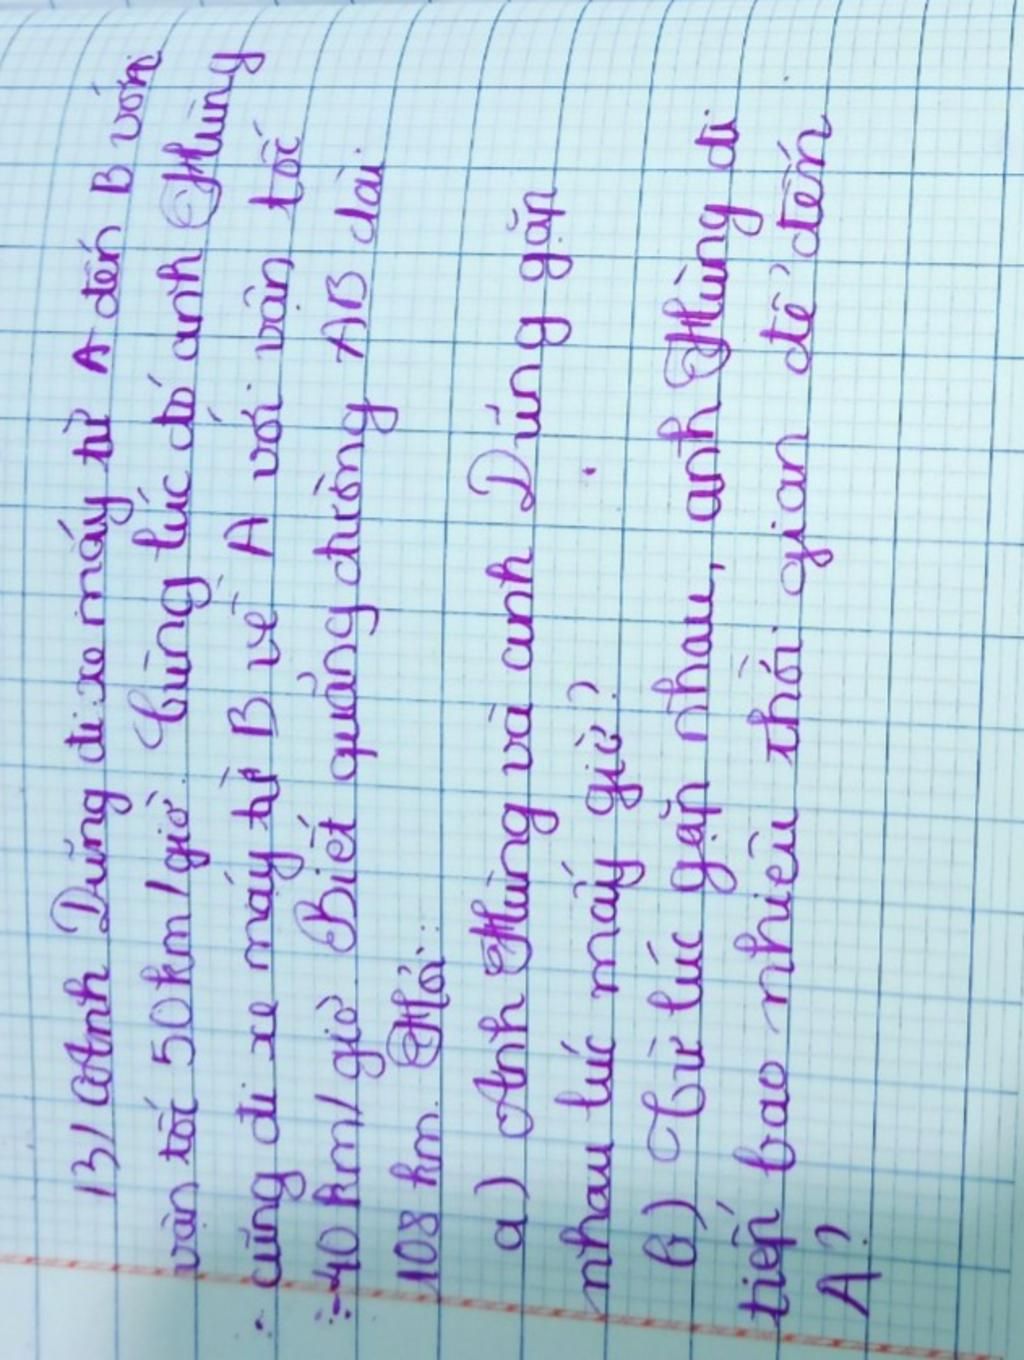 13/ Anh Dũng đi xe máy từ A đến B với
vận tốc 50 km/giờ. Cùng lúc đó anh Hùng
cũng đi xe máy từ B về A với vận tốc
40 km/giờ. Biết quảng đường AB dài
108 km. Hỏi:
a) Anh Hùng và anh Dũng gặp
nhau lúc mấy giờ?
b) Từ lúc gặp nhau, anh Hùng đi
tiếp bao nhiêu thời gian để đến
A?